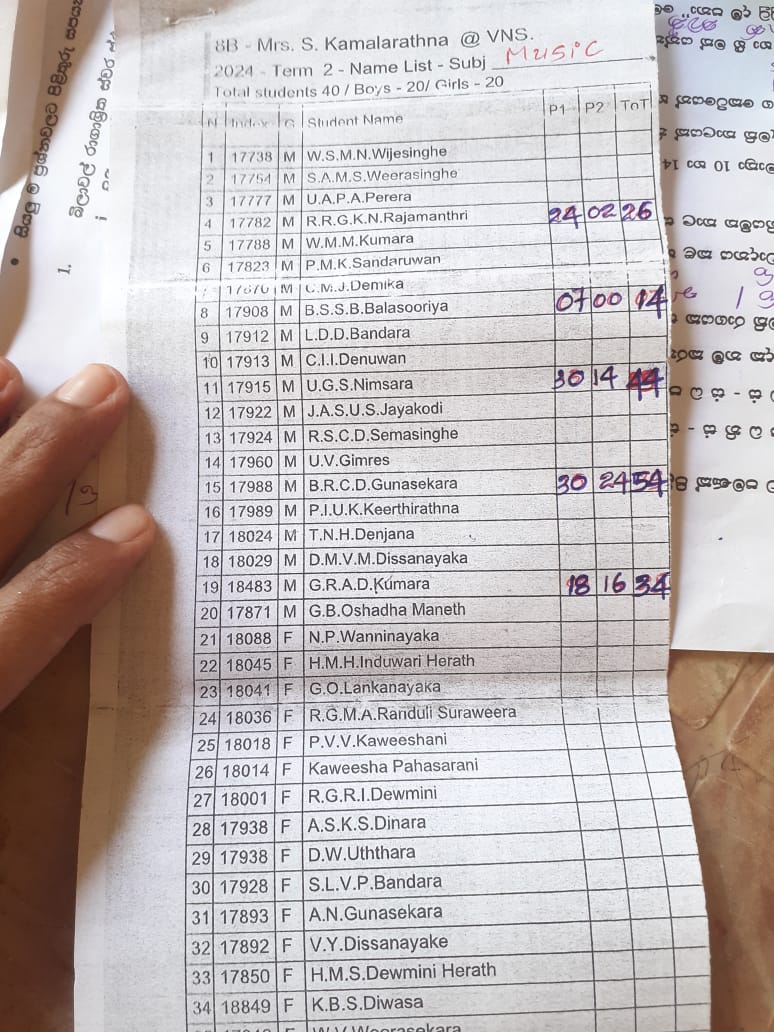 8B - Mrs. S. Kamalarathna @ VNS.
2024 - Term 2 - Name List - Subj Music
Total students 40 / Boys - 20/ Girls - 20
N Index G Student Name P1 P2 ToT
1 17738 M W.S.M.N.Wijesinghe
2 17754 M S.A.M.S.Weerasinghe
3 17777 M U.A.P.A.Perera
4 17782 M R.R.G.K.N.Rajamanthri 24 02 26
5 17788 M W.M.M.Kumara
6 17823 M P.M.K.Sandaruwan
7 17870 M C.M.J.Demika
8 17908 M B.S.S.B.Balasooriya 07 00 14
9 17912 M L.D.D.Bandara
10 17913 M C.I.I.Denuwan
11 17915 M U.G.S.Nimsara 30 14 44
12 17922 M J.A.S.U.S.Jayakodi
13 17924 M R.S.C.D.Semasinghe
14 17960 M U.V.Gimres
15 17988 M B.R.C.D.Gunasekara 30 24 54
16 17989 M P.I.U.K.Keerthirathna
17 18024 M T.N.H.Denjana
18 18029 M D.M.V.M.Dissanayaka
19 18483 M G.R.A.D.Kumara 18 16 34
20 17871 M G.B.Oshadha Maneth
21 18088 F N.P.Wanninayaka
22 18045 F H.M.H.Induwari Herath
23 18041 F G.O.Lankanayaka
24 18036 F R.G.M.A.Randuli Suraweera
25 18018 F P.V.V.Kaweeshani
26 18014 F Kaweesha Pahasarani
27 18001 F R.G.R.I.Dewmini
28 17938 F A.S.K.S.Dinara
29 17938 F D.W.Uththara
30 17928 F S.L.V.P.Bandara
31 17893 F A.N.Gunasekara
32 17892 F V.Y.Dissanayake
33 17850 F H.M.S.Dewmini Herath
34 18849 F K.B.S.Diwasa
W.V.Weerasekara